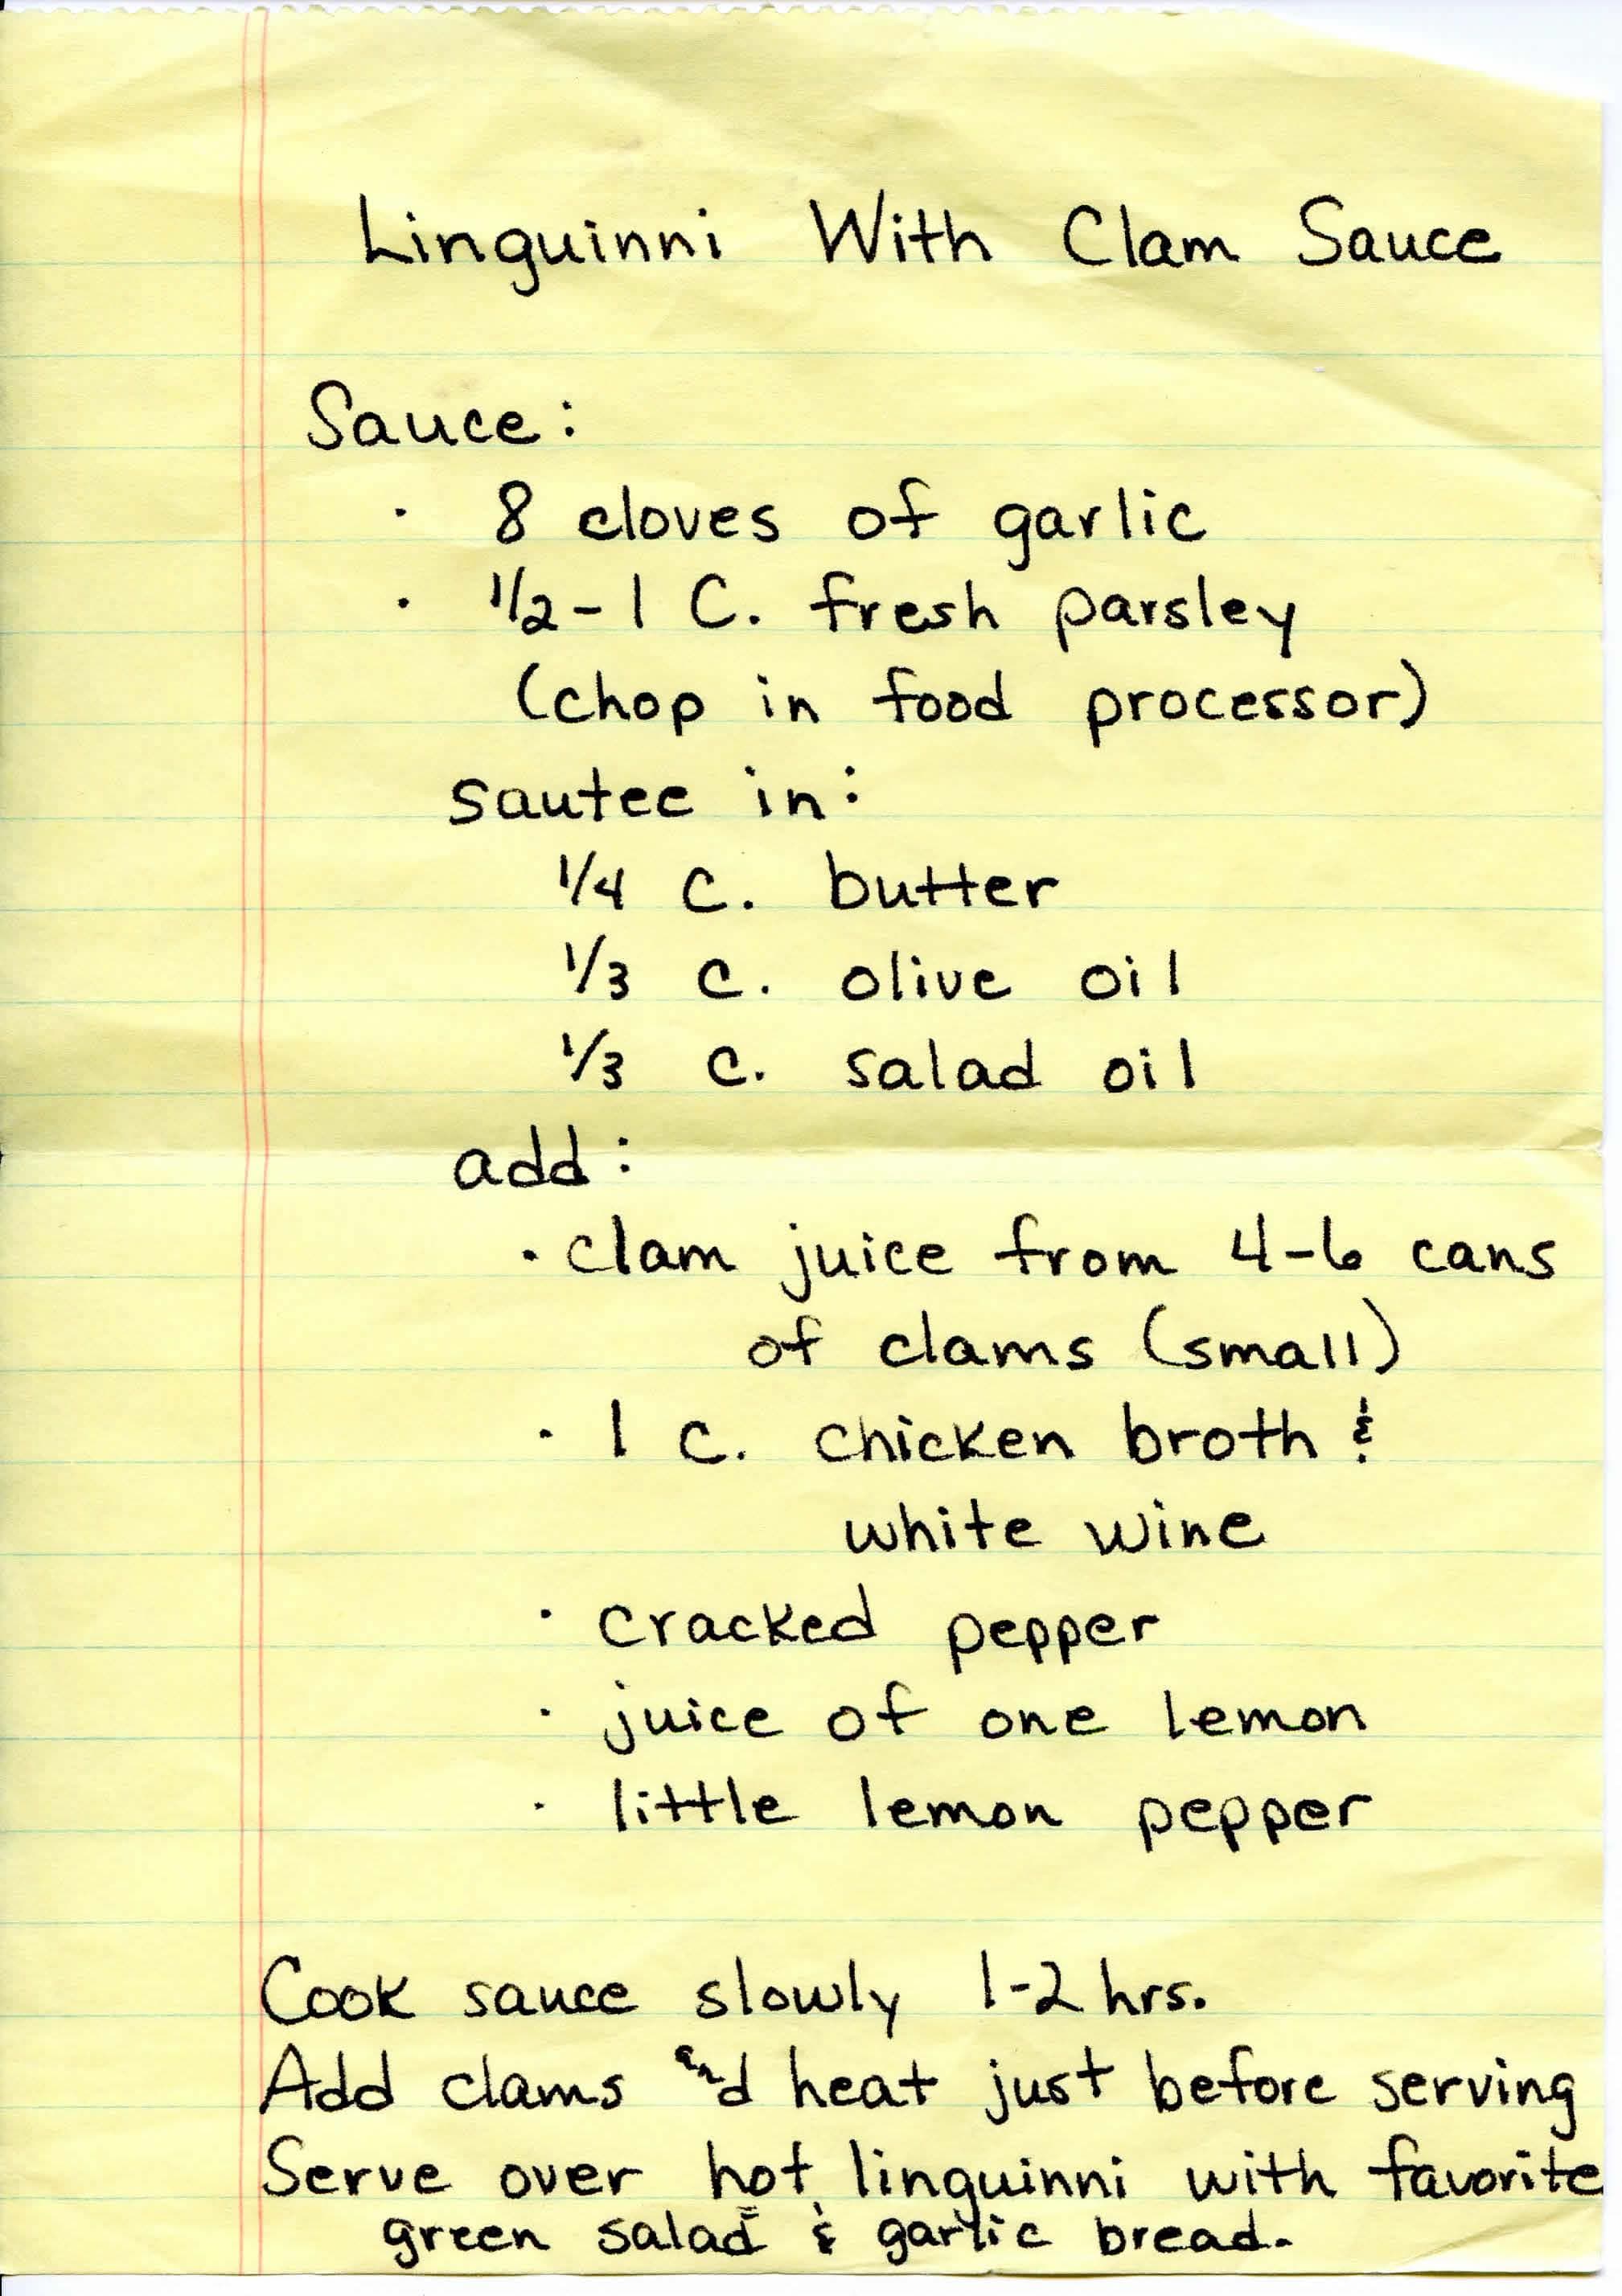 Linguinni With Clam Sauce
Sauce:
· 8 cloves of garlic
· 1/2-1 C. fresh parsley
(chop in food processor)
sautee in:
1/4 C. butter
1/3 C. olive oil
1/3 C. salad oil
add:
· clam juice from 4-6 cans
of clams (small)
· 1 C. chicken broth &
white wine
· cracked pepper
· juice of one lemon
· little lemon pepper
Cook sauce slowly 1-2 hrs.
Add clams and heat just before serving
Serve over hot linguinni with favorite
green salad & garlic bread.